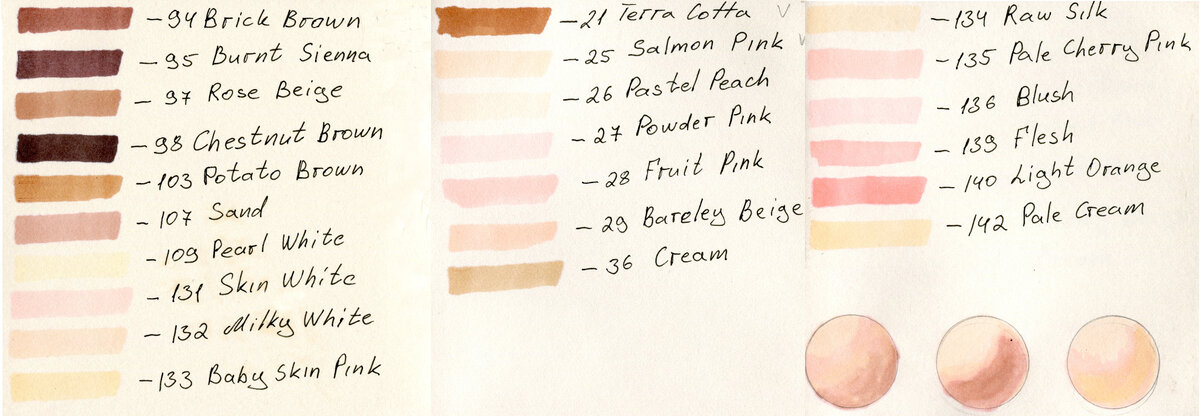 – 94 Brick Brown
– 95 Burnt Sienna
– 97 Rose Beige
– 98 Chestnut Brown
– 103 Potato Brown
– 107 Sand
– 109 Pearl White
– 131 Skin White
– 132 Milky White
– 133 Baby Skin Pink
– 21 Terra Cotta V
– 25 Salmon Pink
– 26 Pastel Peach
– 27 Powder Pink
– 28 Fruit Pink
– 29 Bareley Beige
– 36 Cream
– 134 Raw Silk
– 135 Pale Cherry Pink
– 136 Blush
– 139 Flesh
– 140 Light Orange
– 142 Pale Cream